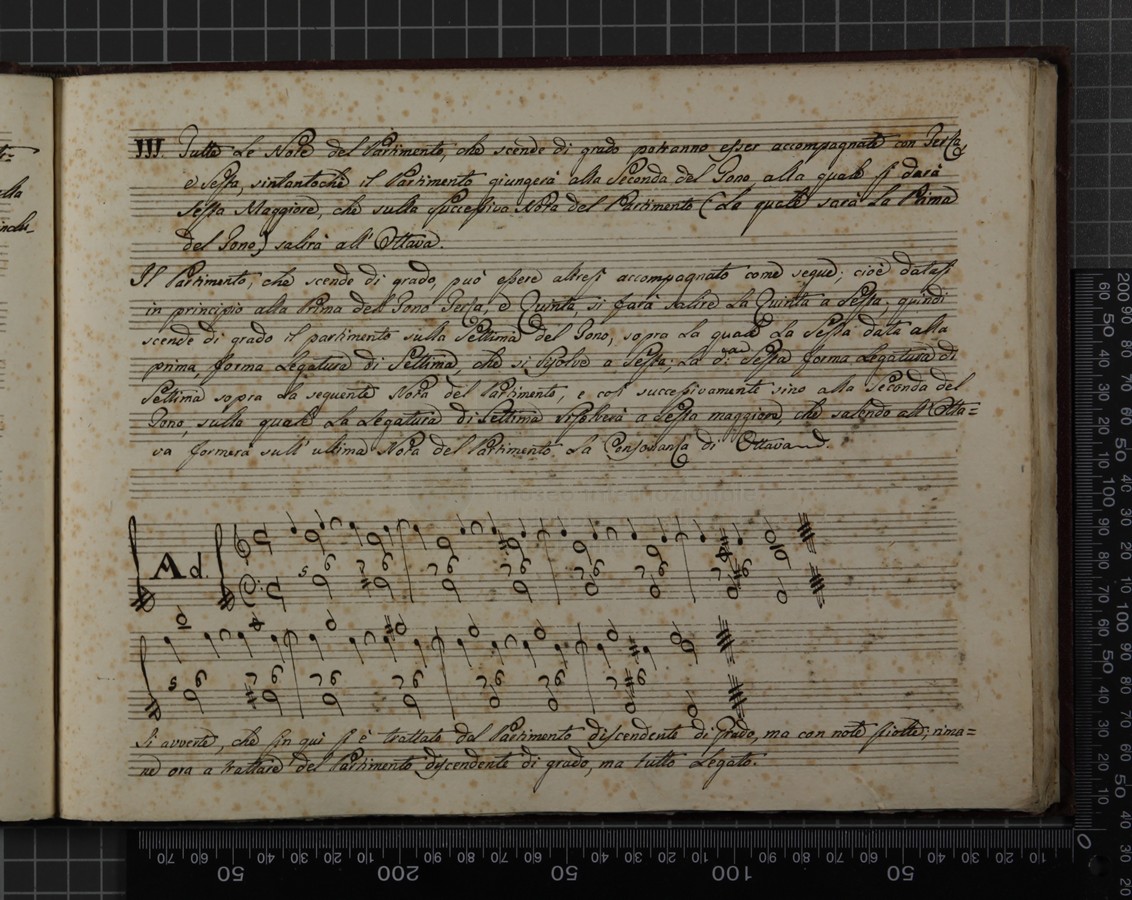 III. Tutte Le Note del Partimento, che scende di grado potranno esser accompagnate con Terza,
e Sessa, sintantoche il Partimento giungerà alla Seconda del Tono, alla quale si darà
Sessa Maggiore, che sulla successiva Nota del Partimento (La quale sarà La Prima
del Tono) salirà all' Ottava.
Il Partimento, che scende di grado può essere altresi accompagnato come segue; cioè datasi
in principio alla Prima dell Tono Terza, e Quinta, si farà salire La Quinta a Sessa; quindi
scende di grado il partimento sulla Settima del Tono, sopra La quale La Sessa data alla
prima, forma Legatura di Settima, che si risolve a Sessa; La d:a Sessa forma Legatura di
Settima sopra La seguente Nota del Partimento, e cosi successivamente sino alla Seconda del
Tono, sulla quale La Legatura di Settima risolverà a Sessa maggiore, che salendo all' Otta=
va formerà sull' ultima Nota del Partimento La Consonanza di Ottava.
Ad.
5 6 7 6 7 6 7 6 7 6 7 6 7 #6
5 6 7 6 7 6 7 6 7 6 7 6 7 6
Si avverte, che fin qui si è trattato dal Partimento discendente di Grado, ma con note sciolte; rima=
ne ora a trattare del Partimento discendente di grado, ma tutto Legato.